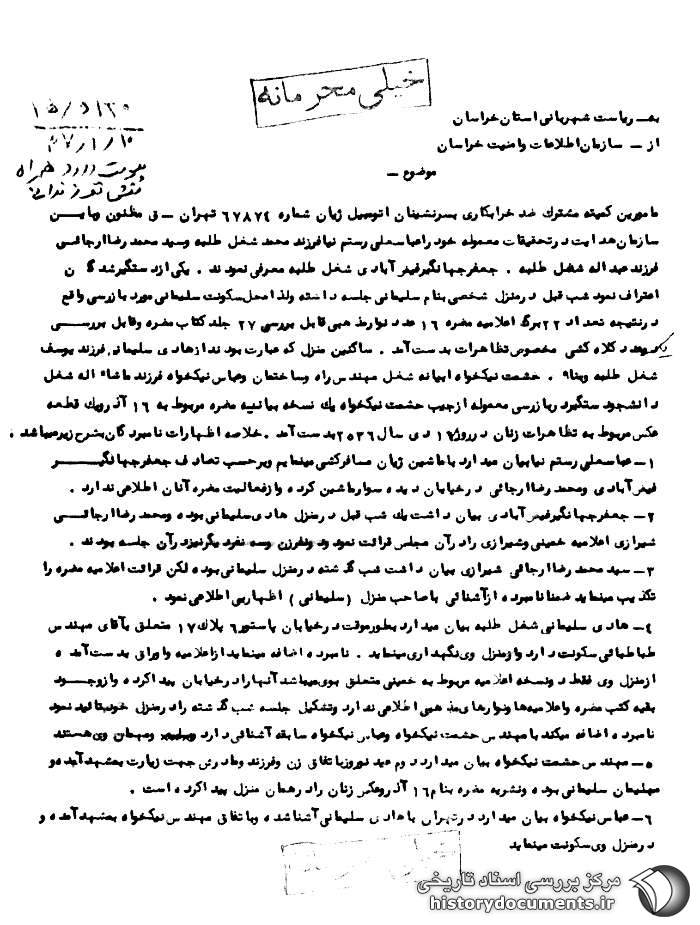 خیلی محرمانه
به ریاست شهربانی استان خراسان
از – سازمان اطلاعات و امنیت خراسان
موضوع –
۴۷/۱/۱۰
پیوست دارد همراه
مامورین کمیته مشترک ضد خرابکاری بسرنشینان اتومبیل ژیان شماره ۶۷۸۷۴ تهران – ق مظنون وباین
سازمان هدایت درتحقیقات معموله خود را عباسعلی رستم نیا فرزند محمد شغل طلبه وسید محمد رضا ارجائی
فرزند عبداله شغل طلبه . جعفر جهانگیر فیض آبادی شغل طلبه معرفی نمودند . یکی از دستگیرشدگان
اعتراف نمود شب قبل درمنزل شخصی بنام سلیمانی جلسه داشته ولذا محل سکونت سلیمانی مورد بازرسی واقع
درنتیجه تعداد ۲۲ برگ اعلامیه مضره ۱۶ عدد نوارمذهبی قابل بررسی ۲۷ جلد کتاب مضره وقابل بررسی
کلاه کشی مخصوص تظاهرات بدست آمد . ساکنین منزل که عبارت بودند از هادی سلیمانی فرزند یوسف
شغل طلبه وبنا . حشمت نیکخواه ابیانه شغل مهندس راه وساختمان وعباس نیکخواه فرزند ماشاء اله شغل
دانشجو دستگیر وبا بازرسی معموله ازجیب حشمت نیکخواه یک نسخه بیانیه مضره مربوط به ۱۶ آذر ویک قطعه
عکس مربوط به تظاهرات زنان در روز ۱۶ دی سال ۲۵۳۶ بدست آمد . خلاصه اظهارات نامبردگان بشرح زیر میباشد .
۱– عباسعلی رستم نیا بیان میدارد با ماشین ژیان مسافرکشی مینمایم وبرحسب تصادف جعفر جهانگیر
فیض آبادی ومحمد رضا ارجائی درخیابان دیده سوار ماشین کرده واز فعالیت مضره آنان اطلاعی ندارد .
۲– جعفر جهانگیر فیض آبادی بیان داشت یک شب قبل درمنزل هادی سلیمانی بوده ومحمد رضا ارجائی
شیرازی اعلامیه خمینی وشیرازی را درآن مجلس قرائت نمود ودونفرزن وسه نفر دیگرنیز درآن جلسه بودند .
۳– سید محمد رضا ارجائی شیرازی بیان داشت شب گذشته درمنزل سلیمانی بوده لکن قرائت اعلامیه مضره را
تکذیب مینماید ضمنا نامبرده از آشنائی باصاحب منزل (سلیمانی) اظهاربی اطلاعی نمود .
۴– هادی سلیمانی شغل طلبه بیان میدارد بطورموقت درخیابان پاستور ۶ پلاک ۱۷ متعلق بآقای مهندس
طباطبائی سکونت دارد واز منزل وی نگهداری مینماید . نامبرده اضافه مینماید ازاعلامیه واوراق بدست آمده
از منزل وی فقط دونسخه اعلامیه مربوط به خمینی متعلق بوی میباشد آنها را درخیابان پیدا کرده وازوجود
بقیه کتب مضره واعلامیه ها ونوارهای مذهبی اطلاعی ندارد وتشکیل جلسه شب گذشته را درمنزل خود تائید نمود
نامبرده اضافه میکند با مهندس حشمت نیکخواه وعباس نیکخواه سابقه آشنائی دارد ومهمان وی هستند
۵– مهندس حشمت نیکخواه بیان میدارد دوم عید نوروز باتفاق زن وفرزند ومادرش جهت زیارت بمشهد آمده و
میهمان سلیمانی بوده ونشریه مضره بنام ۱۶ آذر وعکس زنان را درهمان منزل پیدا کرده است .
۶– عباس نیکخواه بیان میدارد درتهران با هادی سلیمانی آشنا شده وباتفاق مهندس نیکخواه بمشهد آمده و
درمنزل وی سکونت مینماید
مرکز بررسی اسناد تاریخی
historydocuments.ir